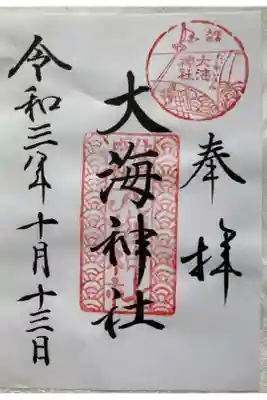 奉拝
大海神社
令和三年十月十三日
大海神社